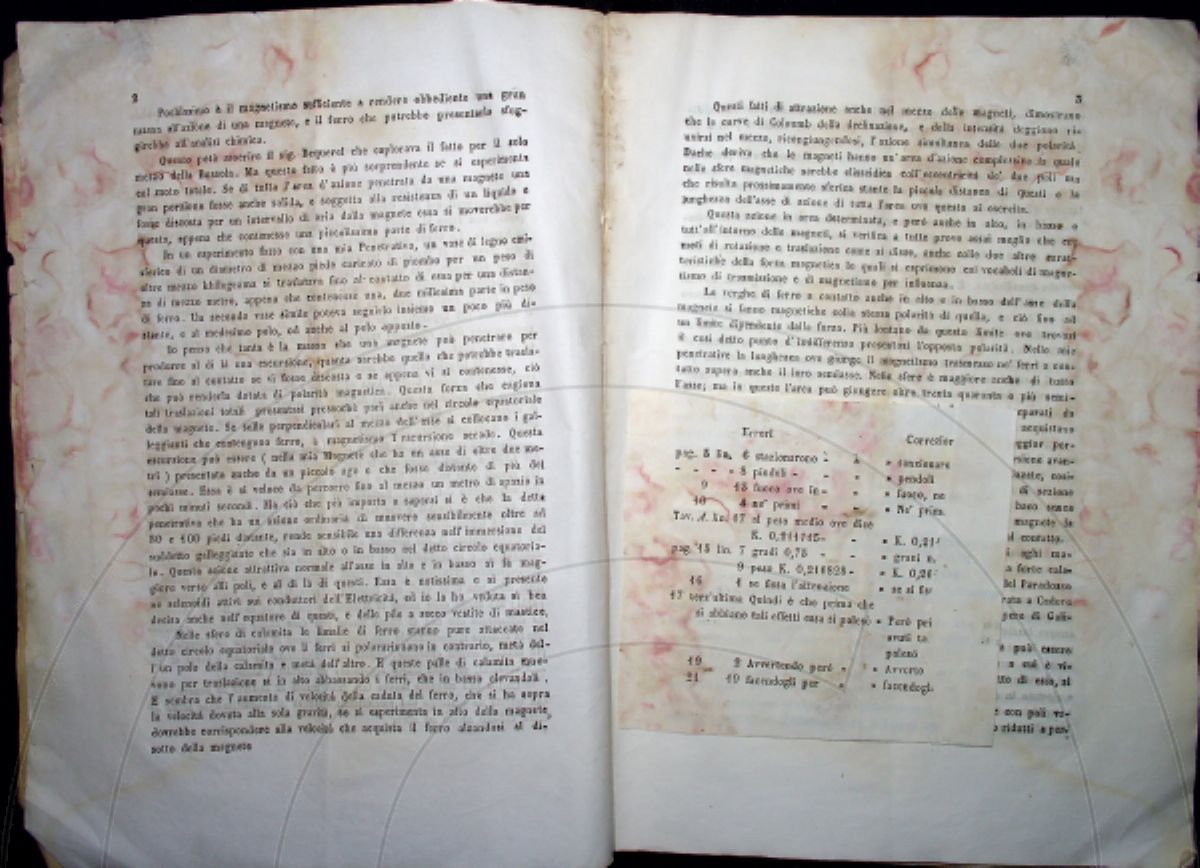 2
Pochissimo è il magnetismo sufficiente a rendere obbediente una gran
massa all'azione di una magnete, e il ferro che potrebbe presentarla sfug-
girebbe all'analisi chimica.
Questo potè asserire il sig. Bequerel che esplorava il fatto per il solo
mezzo della Bussola. Ma questo fatto è più sorprendente se si esperimenta
col moto totale. Se di tutta l'area d'azione penetrata da una magnete una
gran porzione fosse anche solida, e soggetta alla resistenza di un liquido e
fosse discosta per un intervallo di aria dalla magnete essa si moverebbe per
questa, appena che contenesse una piccolissima parte di ferro.
In un esperimento fatto con una mia Penetrativa, un vase di legno emi-
sferico di un diametro di mezzo piede caricato di piombo per un peso di
oltre mezzo khilograma si trasferiva fino al contatto di essa per una distan-
za di mezzo metro, appena che contenesse una, due millesima parte in peso
di ferro. Un secondo vase simile poteva seguirlo insieme un poco più di-
stante, o al medesimo polo, od anche al polo opposto.
Io penso che tanta è la massa che una magnete può penetrare per
produrre al di là una escursione, quanta sarebbe quella che potrebbe trasla-
tare fino al contatto se vi fosse discosta e se appena vi si contenesse, ciò
che può renderla dotata di polarità magnetica. Questa forza che cagiona
tali traslazioni totali presentasi pressochè pari anche nel circolo equatoriale
della magnete. Se sulla perpendicolari al mezzo dell'asse si collocano i gal-
leggianti che contengono ferro, o magnetismo l'escursione accade. Questa
escursione può essere ( nella mia Magnete che ha un asse di oltre due me-
tri ) presentata anche da un piccolo ago e che fosse distante di più del
semiasse. Esso è sì veloce da percorre fino al mezzo un metro di spazio in
pochi minuti secondi. Ma ciò che più importa a sapersi si è che la detta
penetrativa che ha un azione ordinaria di muovere sensibilmente oltre ad
80 e 100 piedi distante, rende sensibile una differenza nell'immersione del
suddetto galleggiante che sia in alto o in basso nel detto circolo equatoria-
le. Questa azione attrattiva normale all'asse in alto e in basso si fa mag-
giore verso alli poli, e al di là di questi. Essa è notissima e si presenta
ne solenoidi attivi sui conduttori dell'Elettricità, ed io la ho veduta sì ben
decisa anche nell'equatore di questi, e delle pile a secco vestite di mastice.
Nelle sfere di calamita le limalie di ferro stanno pure attaccate nel
detto circolo equatoriale ove li ferri si polarizzano in contrario, metà del-
l'un polo della calamita e metà dell'altro. E queste palle di calamita muo-
vono per traslazione sì in alto abbassando i ferri, che in basso elevandoli.
E sembra che l'aumento di velocità della caduta del ferro, che si ha sopra
la velocità dovuta alla sola gravità, se si esperimenta in alto della magnete,
dovrebbe corrispondere alla velocità che acquista il ferro alzandosi al di-
sotto della magnete
3
Questi fatti di attrazione anche nel mezzo delle magneti, dimostrano
che le curve di Colomb della declinazione, e della intensità deggiono riu-
nirsi nel mezzo, ricongiungendosi, l'azione simultanea delle due polarità.
Dache deriva che le magneti hanno un'area d'azione complessiva la quale
nelle sfere magnetiche sarebbe elissoidica coll'eccentricità de' due poli ma
che risulta prossimamente sferica stante la piccola distanza di questi o la
lunghezza dell'asse di azione di tutta l'area ove questa si esercita.
Questa azione in area determinata, e però anche in alto, in basso o
tutt'all'intorno della magneti, si verifica a tutte prove assai meglio che co'
moti di rotazione e traslazione come si disse, anche colle due altre carat-
teristiche della forza magnetica le quali si esprimono coi vocaboli di magne-
tismo di trasmissione e di magnetismo per influenza.
Le verghe di ferro a contatto anche in alto o in basso dell'asse della
magnete si fanno magnetiche colla stessa polarità di quella, e ciò fino ad
un limite dipendente dalla forza. Più lontano da questo limite ove trovasi
il così detto punto d'indifferenza presentasi l'opposta polarità. Nelle mie
penetrative la lunghezza ove giunge il magnetismo trasfuso ne' ferri a con-
tatto supera anche il loro semiasse. Nelle sfere è maggiore anche di tutto
l'asse; ma in questa l'area può giungere oltre trenta quaranta o più semi-
parati da
acquistano
eggior per-
rsione avan-
di sezione
basso senza
magnete la
al contatto.
i aghi ma-
a forza cala-
del Paradosso
rata a Cedora
pera di Gali-
a può essere
a cui è vi-
tto di essa, si
e con poli ve-
o ridotti a peri
Errori
Correzioni
pag. 8 lin. 6 stazionarono - » » stazionare
- - - - » 8 pindoli - » » pendoli
9 18 fuoco ove in- » » fuoco, ne
10 4 ne' primi » » Ne' prim
Tav. A. lin. 17 al peso medio ove dice
K. 0,211745- - » K. 0,21
pag. 15 lin. 7 gradi 0,75 - - » grani 0,
9 pesa K. 0,216828- » K. 0,26
16 4 se fosse l'attrazione » se si fo
17 terz'ultima Quindi è che prima che
si abbiano tali effetti essa si palesò » Però pei
avuti ta
palesò
19 2 Avvertendo però » » Avverto
21 19 facendogli per » » facendogl.